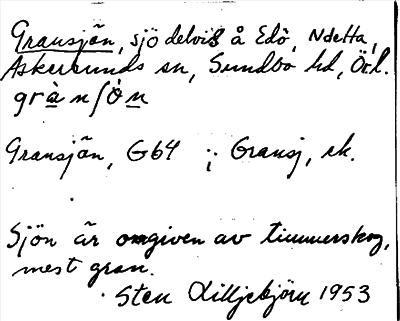 Gransjön, sjö delvis å Edö, Ndetta,
Askersunds sn, Sundbo hd, Örl.
grànſòn
Gransjön, G64 ; Gransj, rk.
Sjön är omgiven av timmerskog,
mest gran.
Sten Lilljebjörn 1953